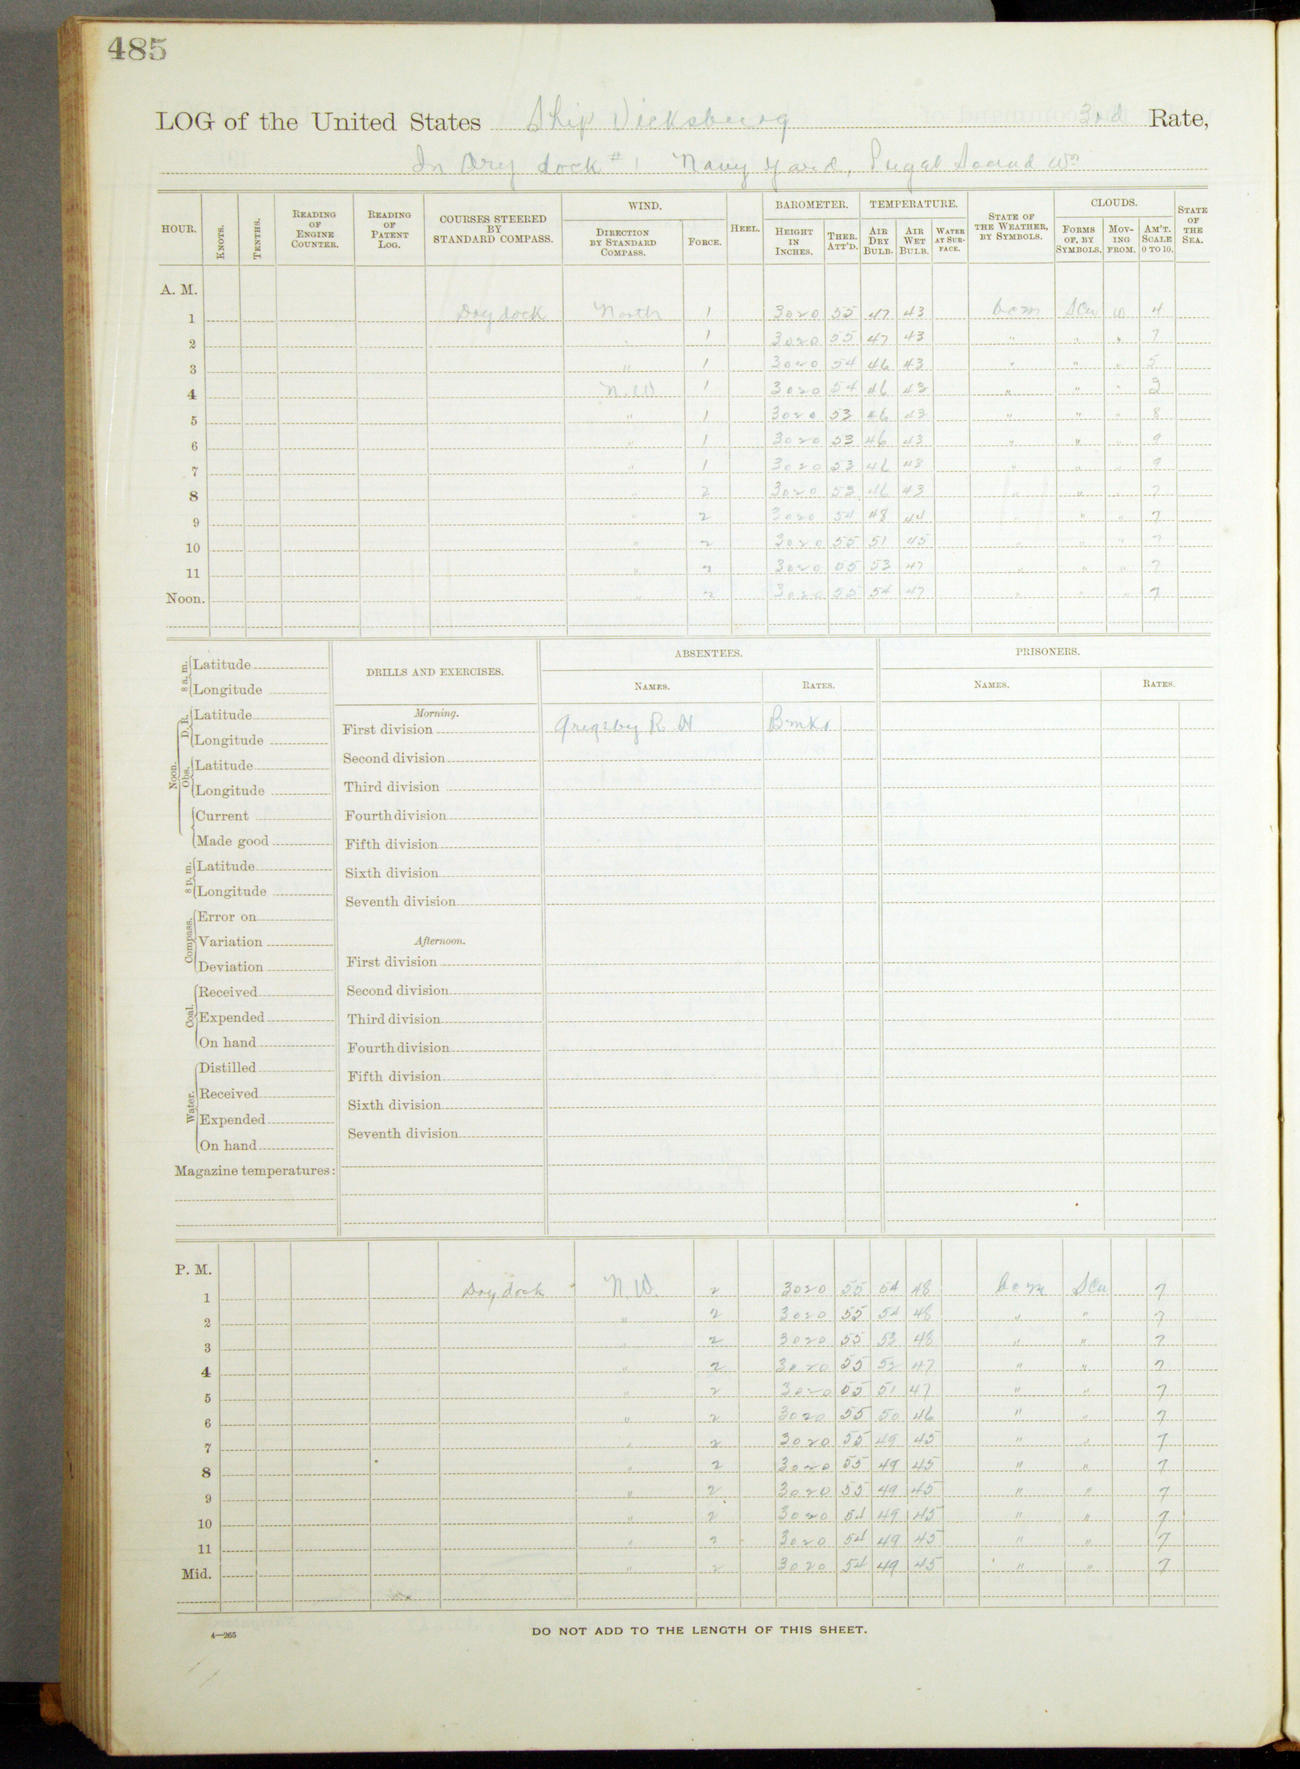 485
LOG of the United States Ship Vicksburg 3rd Rate,
In Dry dock #1 Navy Yard, Puget Sound Wn
HOUR. KNOTS. TENTHS. READING OF ENGINE COUNTER. READING OF PATENT LOG. COURSES STEERED BY STANDARD COMPASS. WIND. DIRECTION BY STANDARD COMPASS. FORCE. HEEL. BAROMETER. HEIGHT IN INCHES. THER. ATT'D. TEMPERATURE. AIR DRY BULB. AIR WET BULB. WATER AT SURFACE. STATE OF THE WEATHER, BY SYMBOLS. CLOUDS. FORMS OF, BY SYMBOLS. MOVING FROM. AM'T. SCALE 0 TO 10. STATE OF THE SEA.
A. M.
1 Dry dock North 1 3020 55 47 43 bcm SCu W 4
2 " 1 3020 55 47 43 " " " 7
3 " 1 3020 54 46 43 " " " 5
4 N.W 1 3020 54 46 43 " " " 3
5 " 1 3020 53 46 43 " " " 8
6 " 1 3020 53 46 43 " " " 9
7 " 1 3020 53 46 43 " " " 9
8 " 2 3020 53 46 43 " " " 7
9 " 2 3020 54 48 44 " " " 7
10 " 2 3020 55 51 45 " " " 7
11 " 2 3020 55 53 47 " " " 7
Noon. " 2 3020 55 54 47 " " " 7
8 a. m. Latitude
Longitude
Noon. D. R. Latitude
Longitude
Obs. Latitude
Longitude
Current
Made good
8 p. m. Latitude
Longitude
Compass. Error on
Variation
Deviation
Coal. Received
Expended
On hand
Water. Distilled
Received
Expended
On hand
Magazine temperatures:
DRILLS AND EXERCISES.
Morning.
First division
Second division
Third division
Fourth division
Fifth division
Sixth division
Seventh division
Afternoon.
First division
Second division
Third division
Fourth division
Fifth division
Sixth division
Seventh division
ABSENTEES.
NAMES. RATES.
Grigsby R H Bmkr
PRISONERS.
NAMES. RATES.
P. M.
1 Dry dock N.W 2 3020 55 54 48 bcm SCu 7
2 " 2 3020 55 54 48 " " 7
3 " 2 3020 55 53 48 " " 7
4 " 2 3020 55 52 47 " " 7
5 " 2 3020 55 51 47 " " 7
6 " 2 3020 55 50 46 " " 7
7 " 2 3020 55 49 45 " " 7
8 " 2 3020 55 49 45 " " 7
9 " 2 3020 55 49 45 " " 7
10 " 2 3020 54 49 45 " " 7
11 " 2 3020 54 49 45 " " 7
Mid. " 2 3020 54 49 45 " " 7
4—265
DO NOT ADD TO THE LENGTH OF THIS SHEET.